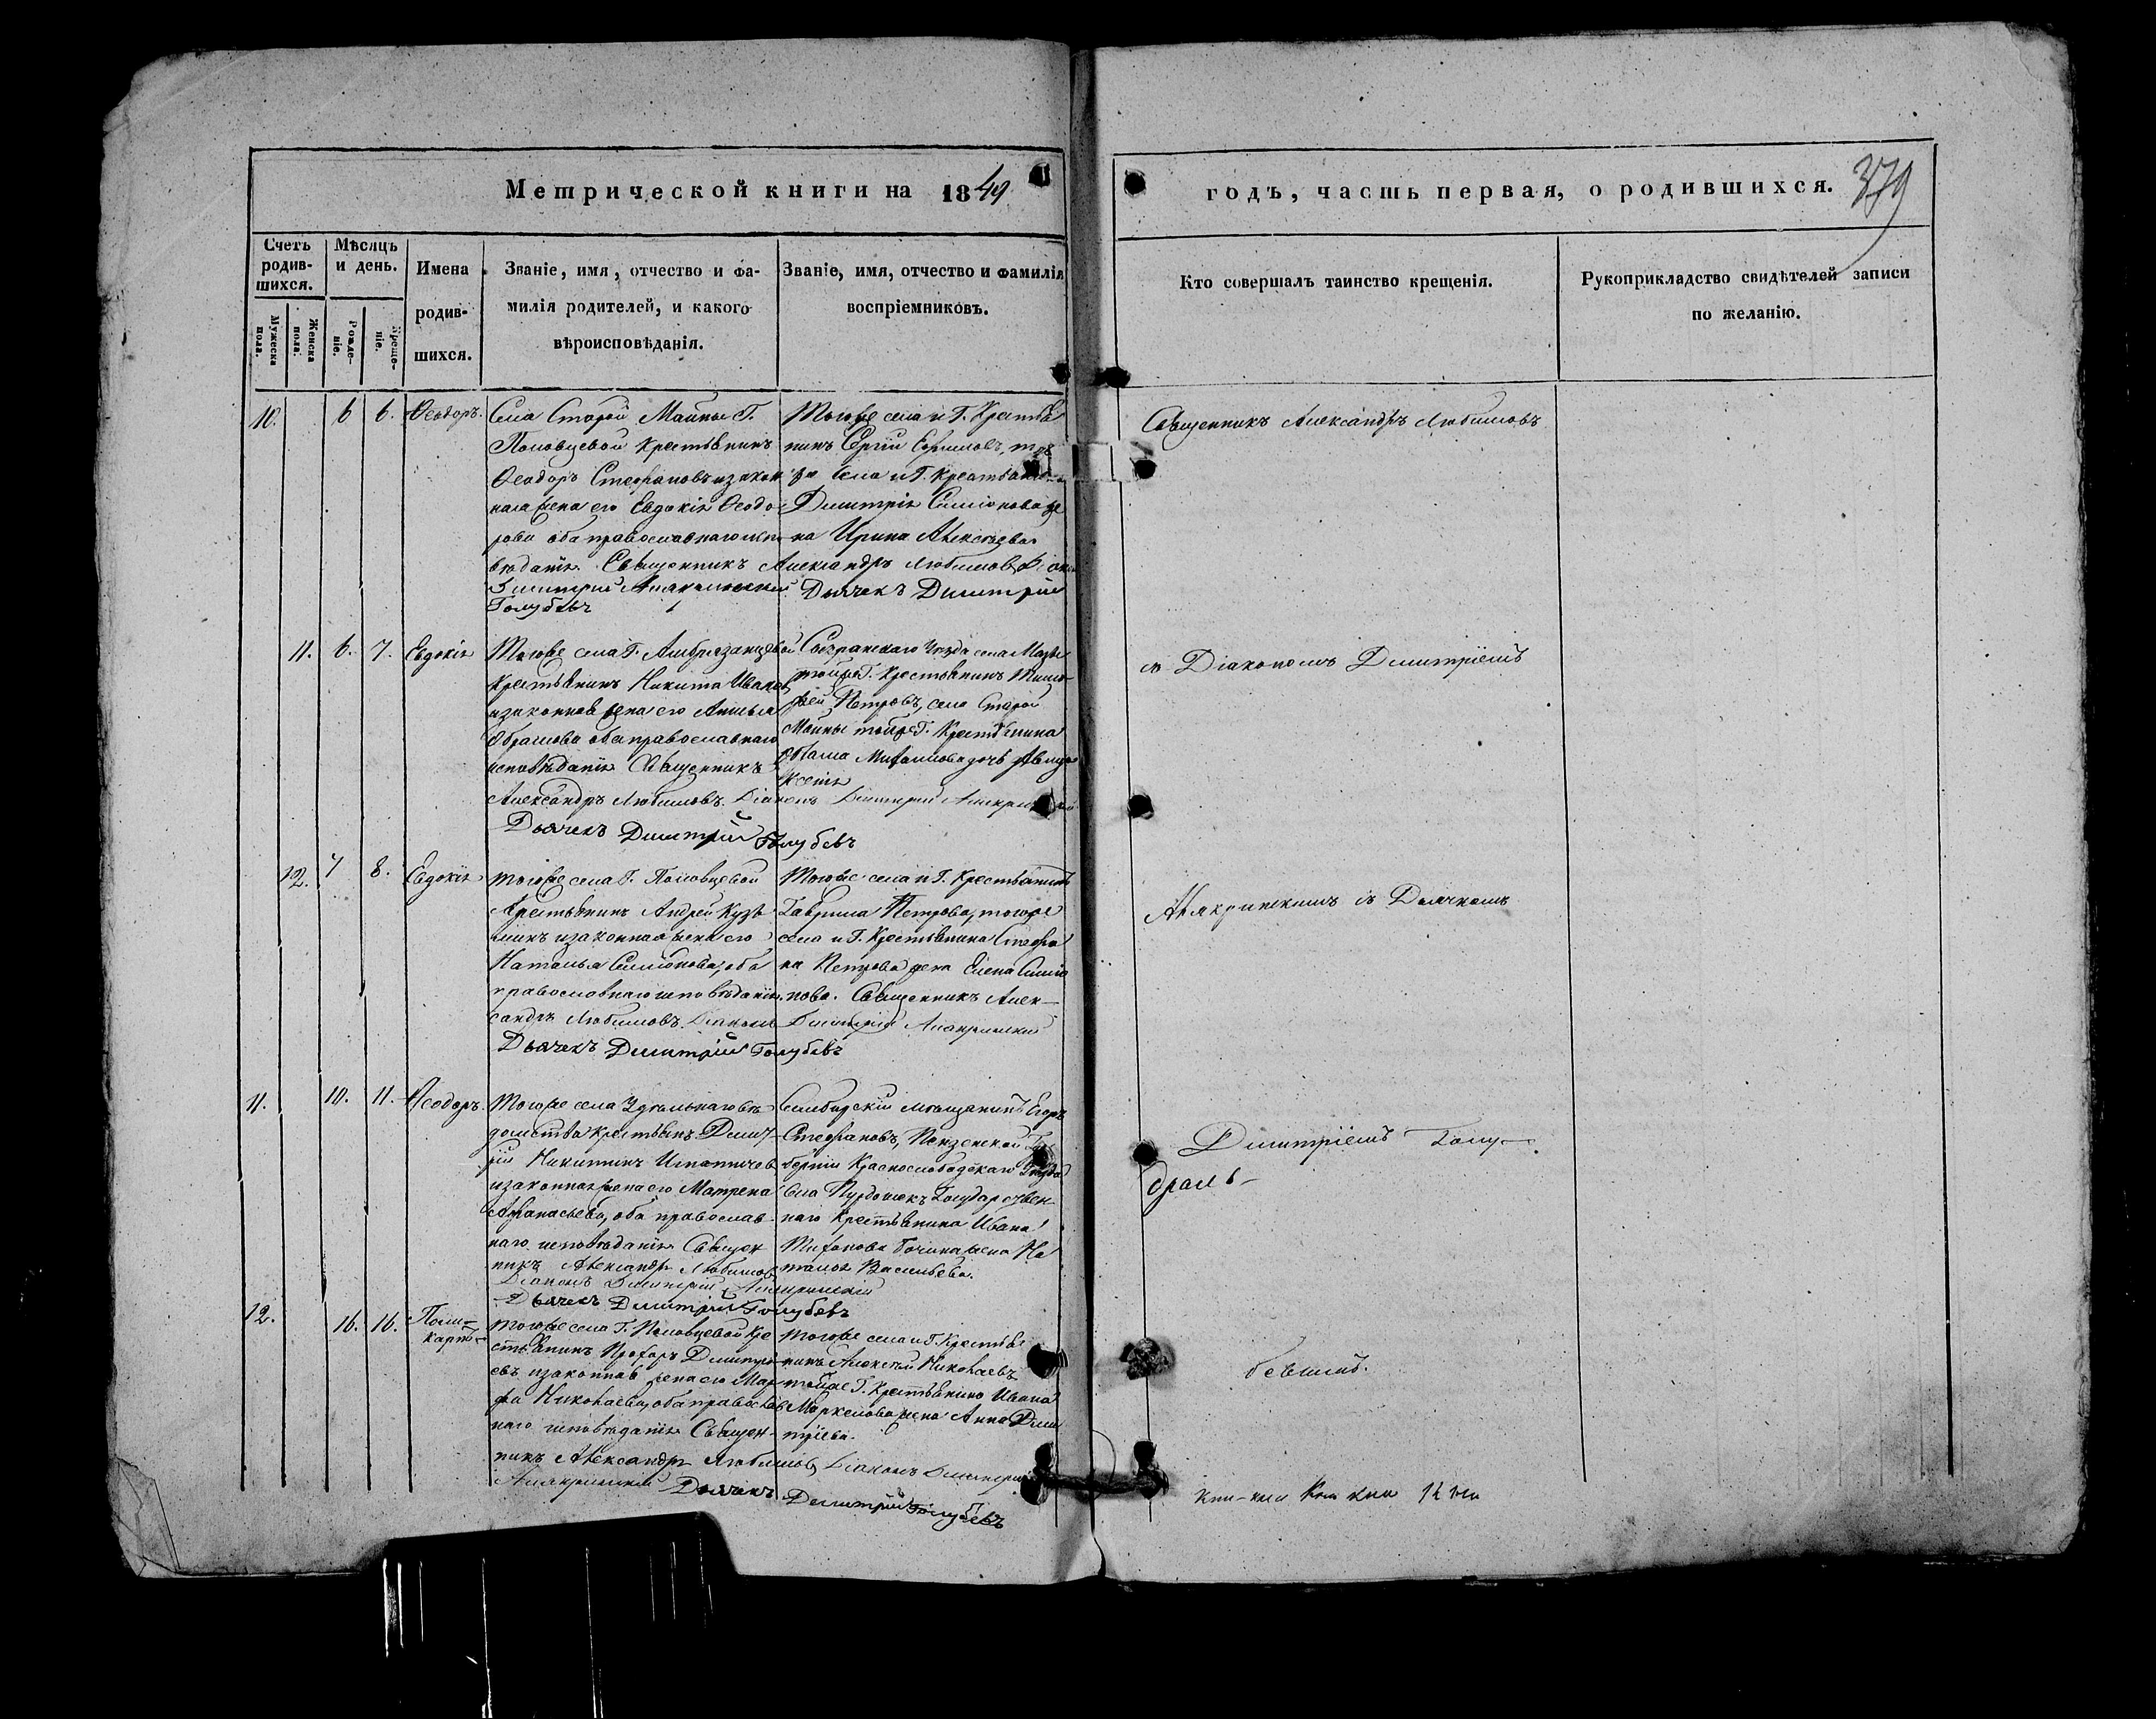 Метрической книги на 1849
годъ, часть первая, о родившихся.
379
Счетъ родившихся.
Мѣсяцъ и день.
Имена родившихся.
Званіе, имя, отчество и фамилія родителей, и какого вѣроисповѣданія.
Званіе, имя, отчество и фамилія воспріемниковъ.
Кто совершалъ таинство крещенія.
Рукоприкладство свидѣтелей записи по желанію.
Мужеска пола.
Женска пола.
Рожденіе.
Крещеніе.
10. 6 6. Ѳеодоръ.
Села Старой Майны Г.
Половцевой крестьянинъ
Ѳеодоръ Стефановъ изакон
ная жена его Евдокія Ѳеодо
рова оба православнаго испо
вѣданія. Священникъ Александръ Любимовъ
Голубевъ
Тогоже села и Г. Крестья
нинъ Сергій Ефимовъ, тог
же села и Г. крестьянина
Димитрія Симіонова же
на Ирина Алексѣева
Дьячекъ Димитрій
Священникъ Александръ Любимовъ
11. 6. 7. Евдокія
Тогоже села Г.
Крестьянинъ Никита Иванов
изаконная жена его
оба православнаго
исповѣданія Священникъ
Александръ Любимовъ. Діаконъ Димитрій
Дьячекъ Димитрій Голубевъ
Сызранскаго Уѣзда села
тойже Г. Крестьянинъ Тимо
фей Петровъ, села Старой
Майны тойже Г. Крестьянина
дочь
ксенія
съ Діакономъ Димитріемъ
12. 7 8. Евдокія
тогоже села Г. Половцевой
Крестьянинъ Андрей Кузь
минъ изаконная жена его
Наталья Симіонова, оба
православнаго исповѣданія.
Тогоже села и Г. Крестьянинъ
Гаврила Петровъ, тогоже
села и Г. Крестьянина Стефа
на Петрова жена Елена Симіо
нова. Священникъ Алек-
сандръ Любимовъ Діаконъ Димитрій
Дьячекъ Димитрій Голубевъ
съ Дьячкомъ
11. 10. 11. Ѳеодоръ.
Тогоже села Удѣльнаго вѣ
домства крестьянинъ Димит
рій Никитинъ
изаконная жена его Матрена
Афанасьева, оба православ
наго исповѣданія Священ
никъ Александръ Любимовъ
Діаконъ Димитрій
Дьячекъ Димитрій Голубевъ
Симбирскій мѣщанинъ Егоръ
Стефановъ, Пензенской Гу
берніи Краснослободскаго Уѣзда
села Пурдошекъ Государствен
наго Крестьянина Ивана
жена На
талья Васильева.
Димитріемъ Голу-
12. 16. 16. Поли-
карпъ
Тогоже села Г. Половцевой Кре
стьянинъ Прохоръ Димитрі
евъ изаконная жена его Мар
фа Николаева, оба православ
наго исповѣданія Священ-
никъ Александръ Любимовъ Діаконъ Димитрій
Дьячекъ Димитрій Голубевъ
тогоже села и Г. Крестья
нинъ Алексѣй Николаевъ
тойже Г. Крестьянина Ивана
Маркелова жена Анна Дими
тріева.
бевымъ.